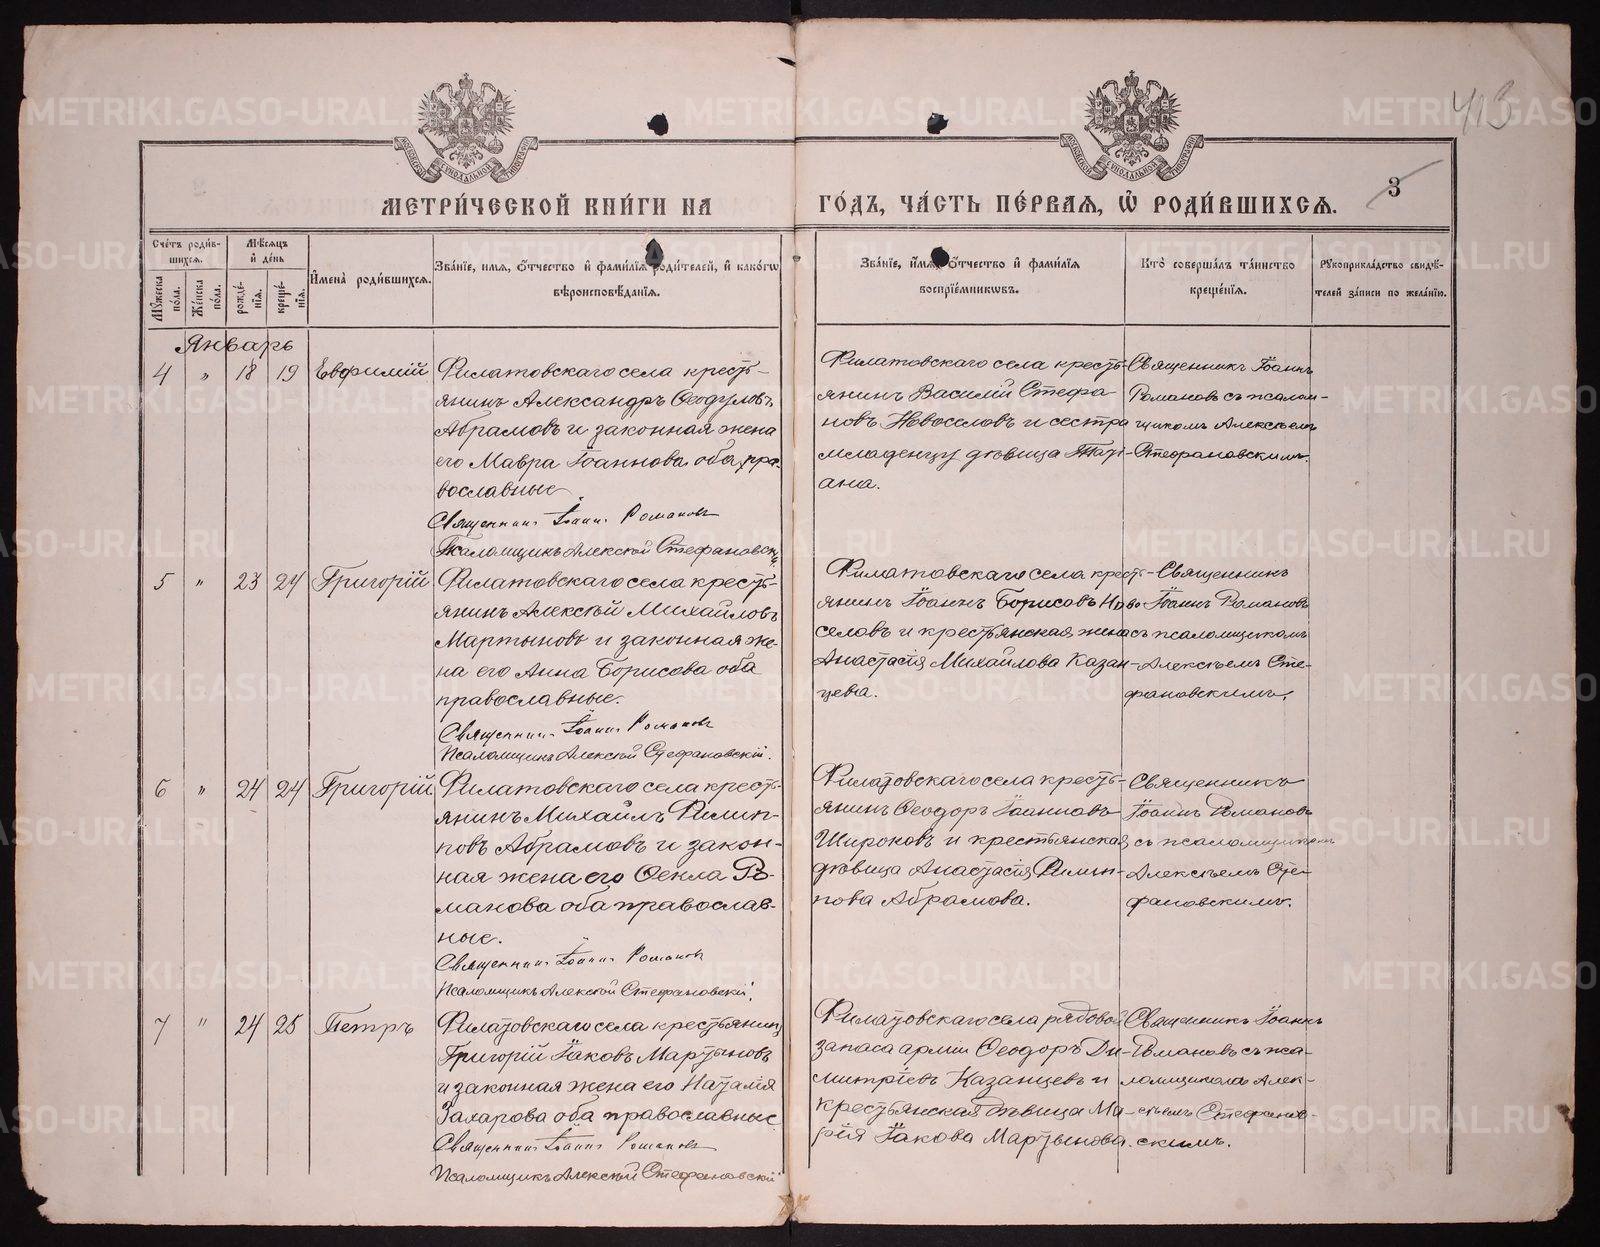 413
3
МЕТРИ́ЧЕСКОЙ КНИ́ГИ НА ГО́ДЪ, ЧА́СТЬ ПЕ́РВАЯ, Ѡ҆ РОДИ́ВШИХСЯ.
Сче́тъ роди́в-
шихся.
Мꙋжеска по́ла.
Же́нска по́ла.
Мѣ́сяцъ
и҆ де́нь
рожде́-
нїя.
креще́-
нїя.
И҆мена̀ роди́вшихся.
Зва́нїе, имя, ѻ҆́тчество и҆ фами́лїя роди́телей, и҆ како́гѡ
вѣроисповѣ́данїя.
Зва́нїе, и҆́мя, ѻ҆́тчество и҆ фами́лїя
воспрїе́мникѡвъ.
Кто̀ соверша́лъ та́инство
креще́нїя.
Рꙋкоприкла́дство свидѣ́-
телей за́писи по жела́нїю.
Январь
4 " 18 19 Евфимій
Филатовскаго села кресть-
янинъ Александръ Ѳеодуловъ
Абрамовъ и законная жена
его Мавра Іоаннова оба пра-
вославные
Священникъ Іоаннъ Романовъ
Псаломщикъ Алексѣй Стефановскій
Филатовскаго села кресть-
янинъ Василій Стефа
новъ Новоселовъ и сестра
младенцу дѣвица Тати-
ана.
Священникъ Іоаннъ
Романовъ съ псалом-
щикомъ Алексѣемъ
Стефановскимъ.
5 " 23 24 Григорій
Филатовскаго села кресть-
янинъ Алексѣй Михайловъ
Мартыновъ и законная же-
на его Анна Борисова оба
православные.
Священникъ Іоаннъ Романовъ
Псаломщикъ Алексѣй Стефановскій.
Филатовскаго села кресть-
янинъ Іоаннъ Борисовъ Ново
селовъ и крестьянская жена
Анастасія Михайлова Казан-
цева.
Священникъ
Іоаннъ Романовъ
съ псаломщикомъ
Алексѣемъ Сте-
фановскимъ.
6 " 24 24 Григорій
Филатовскаго села кресть-
янинъ Михаилъ Филип-
повъ Абрамовъ и закон-
ная жена его Ѳекла Ро-
манова оба православ-
ные.
Священникъ Іоаннъ Романовъ
Псаломщикъ Алексѣй Стефановскій.
Филатовскаго села кресть-
янинъ Ѳеодоръ Іоанновъ
Широковъ и крестьянская
дѣвица Анастасія Филип-
пова Абрамова.
Священникъ
Іоаннъ Романовъ
съ псаломщикомъ
Алексѣемъ Сте-
фановскимъ.
7 " 24 25 Петръ
Филатовскаго села крестьянинъ
Григорій Іаковъ Мартыновъ
и законная жена его Наталія
Захарова оба православные
Священникъ Іоаннъ Романовъ
Псаломщикъ Алексѣй Стефановскій
Филатовскаго села рядовой
запаса арміи Ѳеодоръ Ди-
митріевъ Казанцевъ и
крестьянская дѣвица Ма-
рія Іакова Мартынова.
Священникъ Іоаннъ
Романовъ съ пса-
ломщикомъ Алек-
сѣемъ Стефанов-
скимъ.